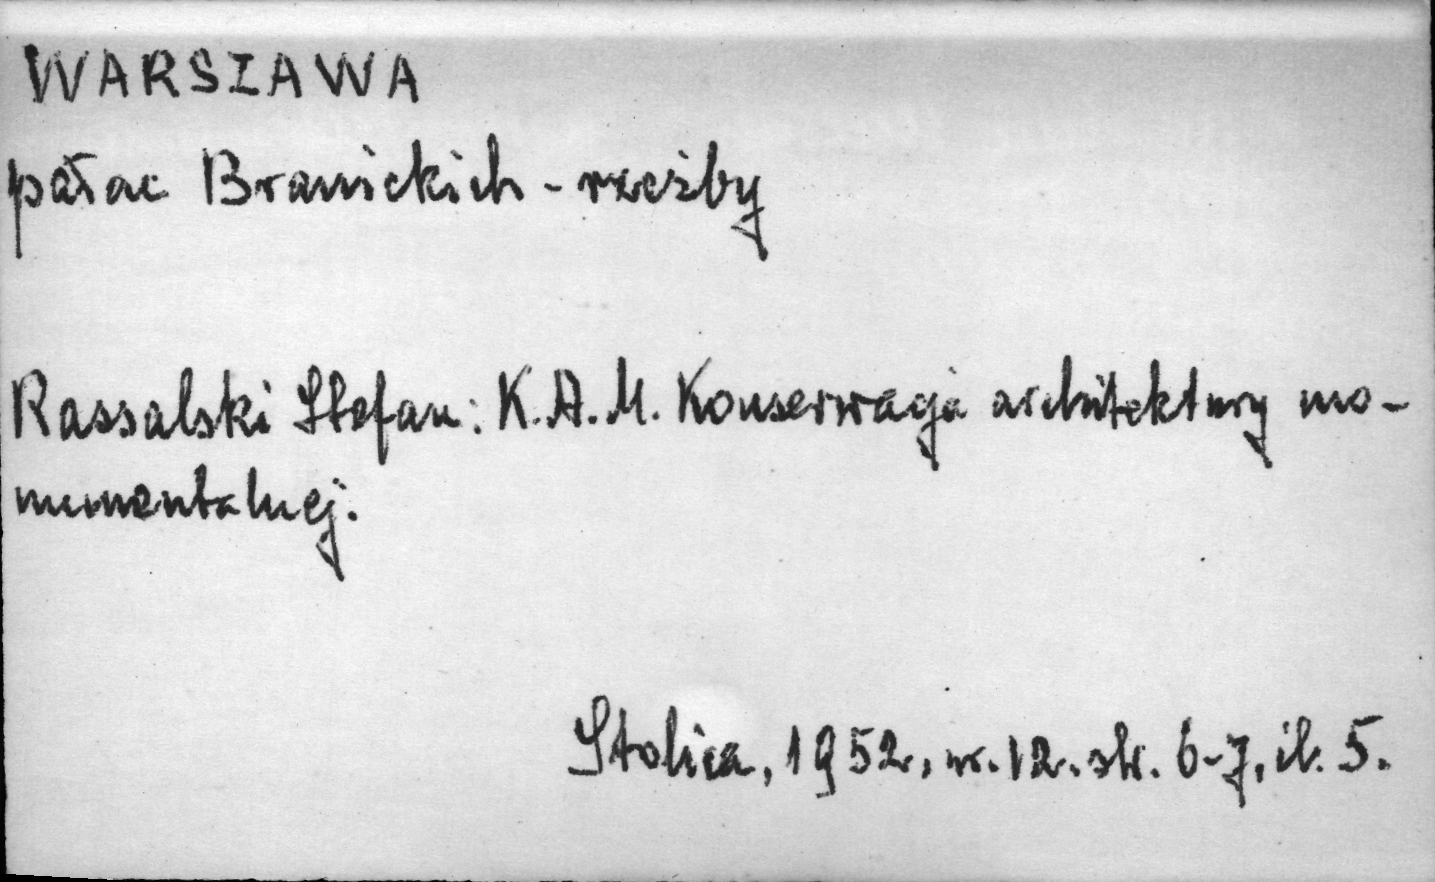 WARSZAWA
pałac Branickich - rzeźby
Rassalski Stefan: K.A.M. Konserwacja architektury mo-
numentalnej.
Stolica, 1952, nr. 12. str. 6-7, il. 5.